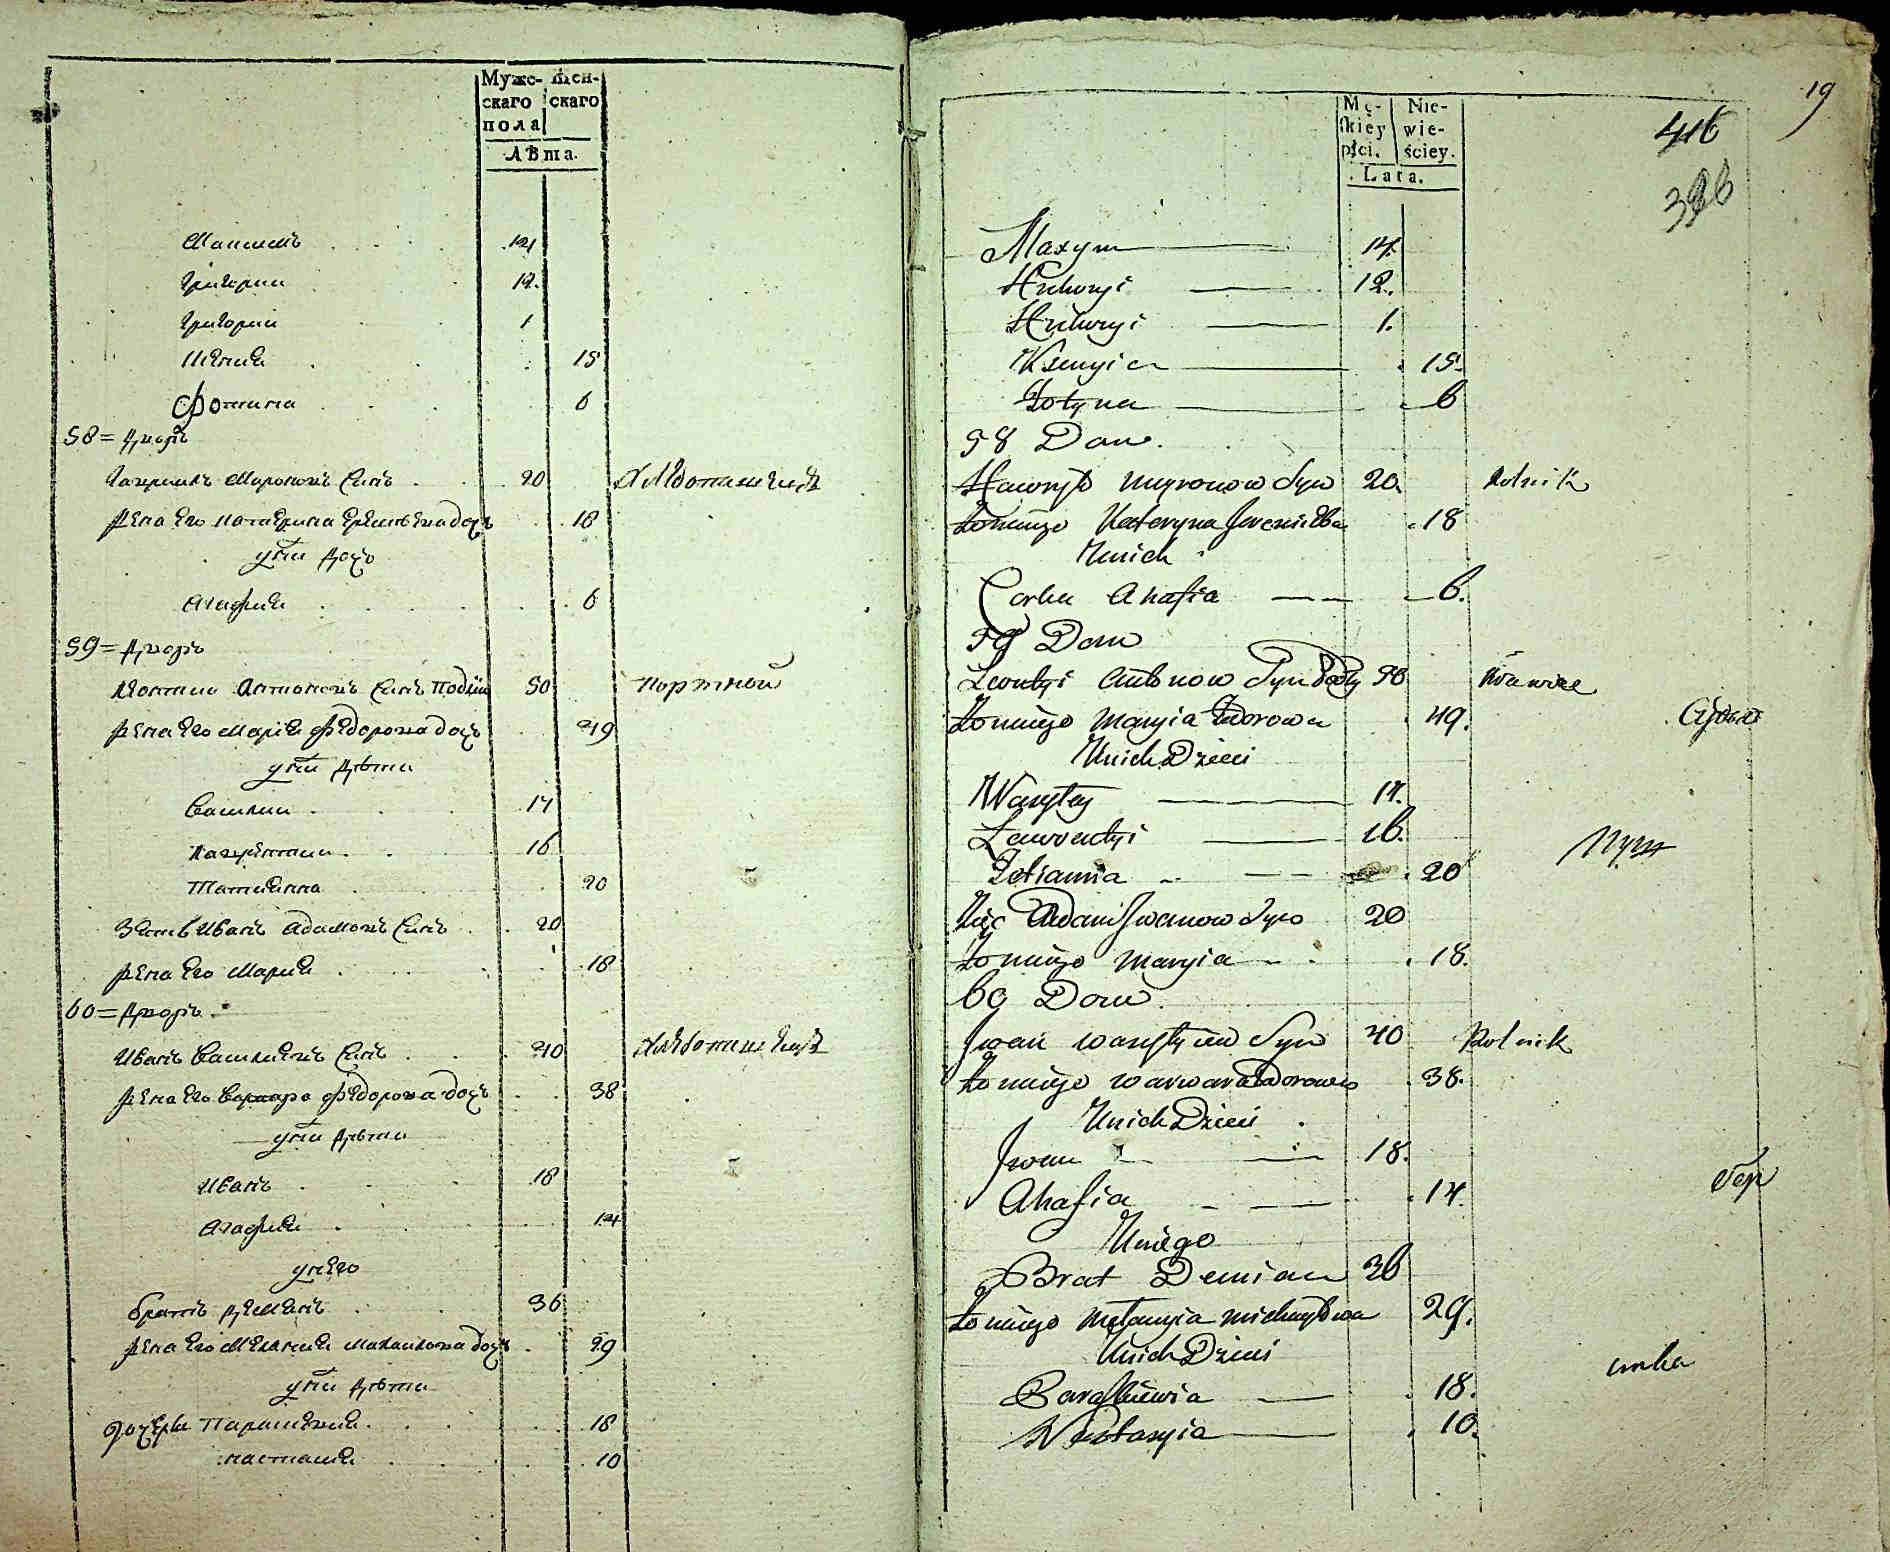 Муже- Жен-
скаго скаго
пола
Лѣта.
Максимъ 14
Григории 12.
Григории 1
Ксения 15
Фотина 6
58 = Дворъ
Гаврилъ Мироновъ Сынъ 20 Хлѣбопашецъ
Жена Его Катерина Еремѣева дочь 18
у них дочь
Агафия 6
59 = Дворъ
Леонтии Антоновъ Сынъ 50 портной
Жена Его Мария Федорова дочь 49
у них дѣти
Василии 17
Лаврентии 16
Татиянна 20
Зять Иванъ Адамовъ Сынъ 20
Жена Его Мария 18
60 = Дворъ
Иванъ Василиевъ Сынъ 40 Хлѣбопашецъ
Жена Его Варвара Федорова дочь 38
у них дѣти
Иванъ 18
Агафия 14
у него
братъ Демянъ 36
Жена Его Мелания Михаилова дочь 29
у них дѣти
дочери Параскевия 18
настасия 10
19
416
Mę- Nie-
skiey wie-
płci. ściey.
Lata.
Maxym 14.
Hrihoryi 12.
Hrihoryi 1.
Ksenyia 15.
Fotyna 6
58 Dom.
Hawryło myronow Syn 20. Rolnik
Żona iego Kateryna Jeremiewa 18
U nich
Corka Ahafia 6.
59 Dom
Leontyi Antonow Syn 50 Krawiec
Żona iego Maryia Fedorowa 49.
U nich Dzieci
Wasyley 17.
Lawrentyi 16.
Tetianna 20
Zięć Adam Iwanow Syn 20
Żona iego Maryia 18.
60 Dom
Iwan wasylyiew Syn 40 Rolnik
Żona iego warwara Fedorowa 38.
U nich Dzieci
Iwan 18.
Ahafia 14.
U niego
Brat Demian 36
Żona iego Mełanyia Michayłowa 29.
U nich Dzieci
Paraskiewia 18.
Nastasyia 10.